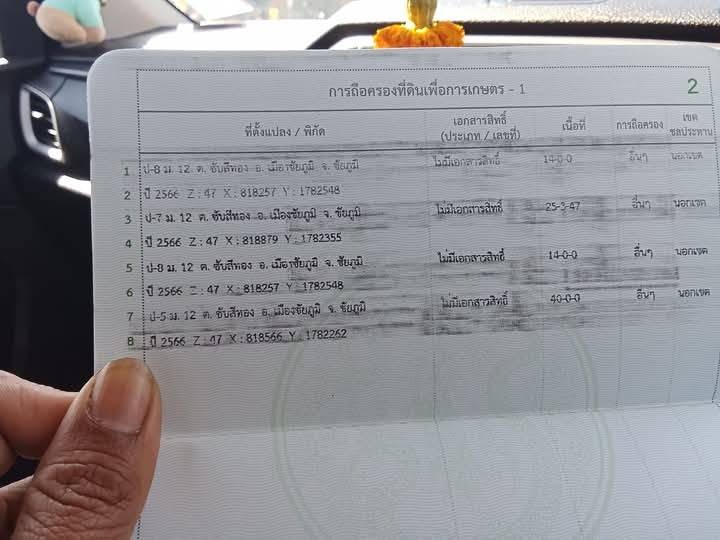 การถือครองที่ดินเพื่อการเกษตร - 1
2
ที่ตั้งแปลง / พิกัด เอกสารสิทธิ์ (ประเภท / เลขที่) เนื้อที่ การถือครอง เขตชลประทาน
1 ป-8 ม. 12 ต. ซับสีทอง อ. เมืองชัยภูมิ จ. ชัยภูมิ ไม่มีเอกสารสิทธิ์ 14-0-0 อื่นๆ นอกเขต
2 ปี 2566 Z : 47 X : 818257 Y : 1782548
3 ป-7 ม. 12 ต. ซับสีทอง อ. เมืองชัยภูมิ จ. ชัยภูมิ ไม่มีเอกสารสิทธิ์ 25-3-47 อื่นๆ นอกเขต
4 ปี 2566 Z : 47 X : 818879 Y : 1782355
5 ป-8 ม. 12 ต. ซับสีทอง อ. เมืองชัยภูมิ จ. ชัยภูมิ ไม่มีเอกสารสิทธิ์ 14-0-0 อื่นๆ นอกเขต
6 ปี 2566 Z : 47 X : 818257 Y : 1782548
7 ป-5 ม. 12 ต. ซับสีทอง อ. เมืองชัยภูมิ จ. ชัยภูมิ ไม่มีเอกสารสิทธิ์ 40-0-0 อื่นๆ นอกเขต
8 ปี 2566 Z : 47 X : 818566 Y : 1782262